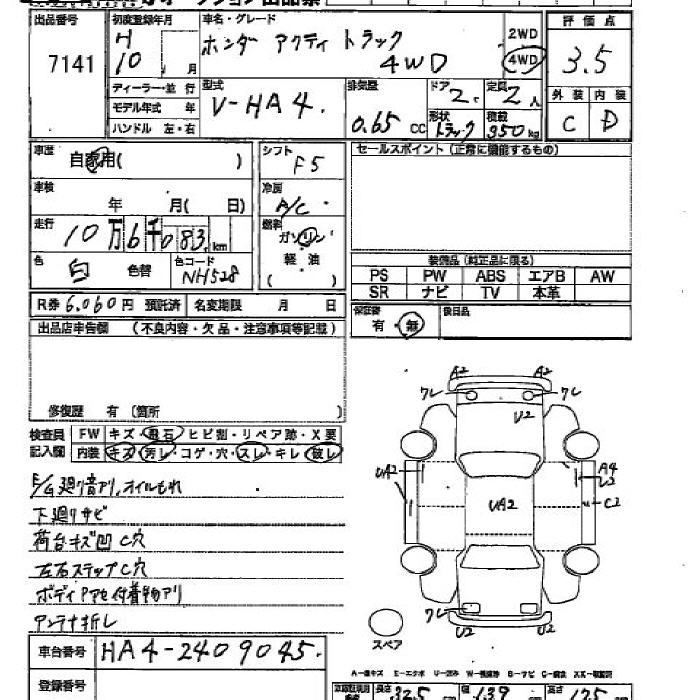 出品番号 初度登録年月 車名・グレード 2WD 評価点
7141 H10 月 ホンダー アクティ トラック 4WD 4WD 3.5
ディーラー・並行 型式 排気量 ドア 定員 外装 内装
モデル年式 年 V-HA4. 0.65 cc 2. 2人 C D
ハンドル 左・右 形状 トラック 積載 350kg
車歴 自家用( ) シフト F5 セールスポイント(正常に機能するもの)
車検 年 月( 日) 冷房 A/C
走行 10万6千083km 燃料 ガソリン
色 白 色替 色コード NH528 軽油
( )
装備品(純正品に限る)
PS PW ABS エアB AW
SR ナビ TV 本革
R券 6,060円 預託済 名変期限 月 日
保証書 有・無 後日品
出品店申告欄 (不良内容・欠品・注意事項等記載)
修復歴 有 (箇所 )
検査員 FW キズ・飛石・ヒビ割・リペア跡・X要
記入欄 内装 キズ・汚レ・コゲ・穴・スレ・キレ・破レ
E/G廻り音アリ,オイルもれ
下廻りサビ
荷台キズ凹 C穴
左右ステップC穴
ボディアセ付着物アリ
アンテナ折レ
車台番号 HA4-2409045.
登録番号
A2 A2
クレ クレ
U2
UA2 UA2 A4
U2
C2
クレ
U2 U2
スペア
長さ 325 cm 幅 139 cm 高さ 175 cm